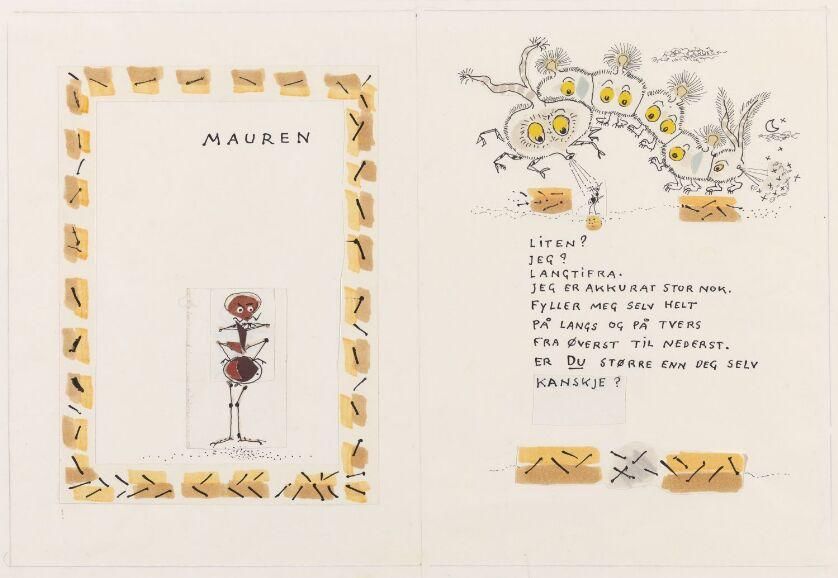 MAUREN
LITEN?
JEG?
LANGTIFRA.
JEG ER AKKURAT STOR NOK.
FYLLER MEG SELV HELT
PÅ LANGS OG PÅ TVERS
FRA ØVERST TIL NEDERST.
ER DU STØRRE ENN DEG SELV
KANSKJE?